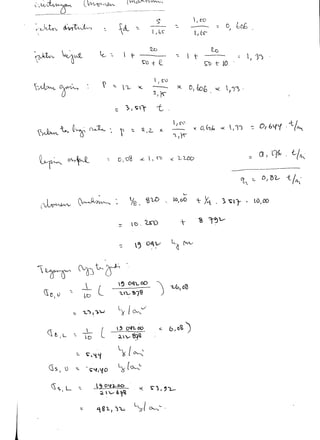 faktor distribusi : fd = 5 / 1,65 = 1,00 / 1,65 = 0,606
faktor kejut k = 1 + 20 / 50 + l = 1 + 20 / 50 + 10 = 1,33
Beban garis : P = 12 × 1,50 / 2,75 × 0,606 × 1,33
= 3,517 t
p = 2,2 × 1,50 / 2,75 × 0,606 × 1,33 = 0,644 t/m
lapis aspal = 0,08 × 1,50 × 2200 = 0,176 t/m
q = 0,82 t/m
1/8 . 820 . 10,00 + 1/4 . 3.517 . 10,00
= 10.250 + 8 792
= 19 042 kg m
Tegangan yg terjadi :
= 1 / 10 ( 19 042 00 / 212 878 ) 26,08
= 23,32 kg/cm²
= 1 / 10 ( 19 042 00 / 212 878 × 6,08 )
= 5,44 kg/cm²
= 54,40 kg/cm²
= 19 042 00 / 212 878 × 53,92
= 482,32 kg/cm²